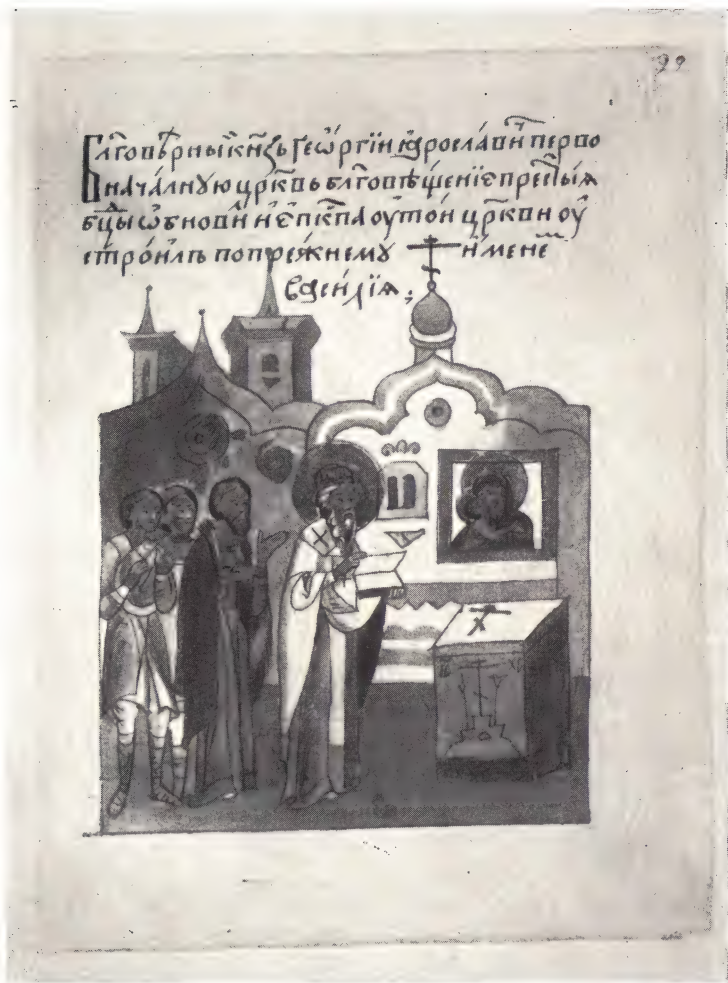 29
Бл҃говѣрныи кн҃зь Геѡ́ргїи ꙗ҆росла́вич перво
нача́лную цр҃ковь бл҃говѣщенїе прест҃ыѧ
бц҃ы ѡ҆бнови и҆ є҆пк҃па оу҆ тои цр҃кви оу҆
строи́лъ по пре́жнему и҆мене